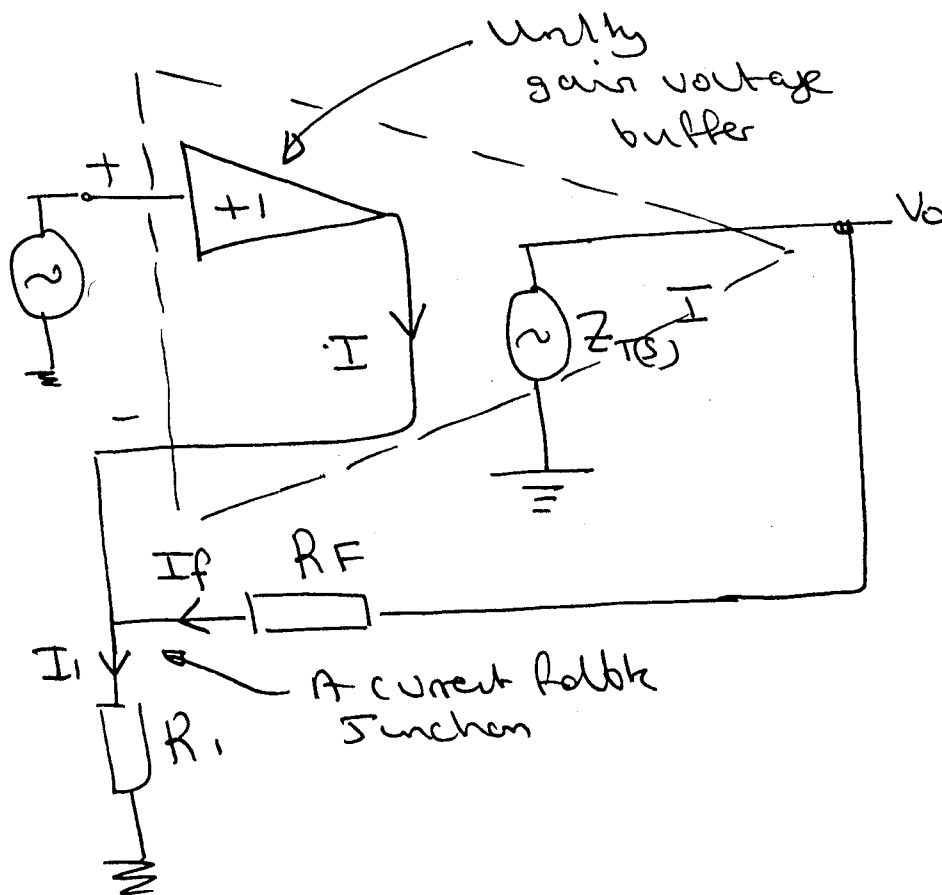 Unity
gain voltage
buffer
+
+1
Vo
I
ZT(s) I
-
If
RF
I1
A current
Junction
R1